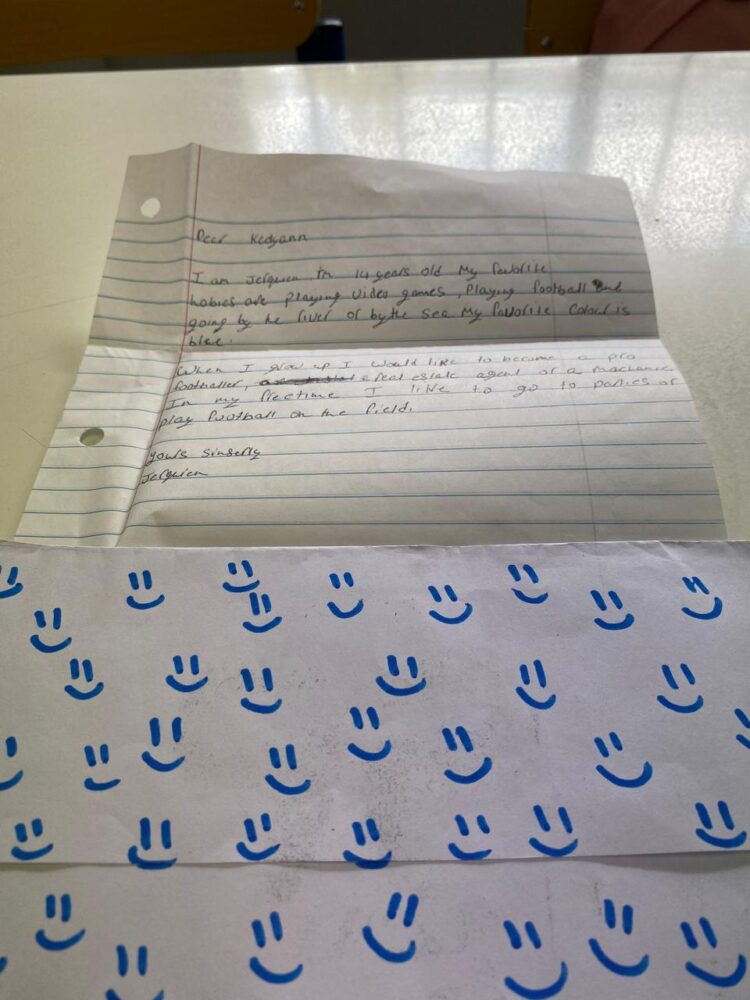 Dear Kedyann
I am Jerquien Im 14 years old My favorite
hobies are playing video games, Playing football and
going by the river or by the sea My favorite Colour is
blue.
When I grow up I would like to become a pro
footballer, a real estate agent or a mechanic
In my freetime I like to go to parties or
play football on the field.
yours sinserly
Jerquien